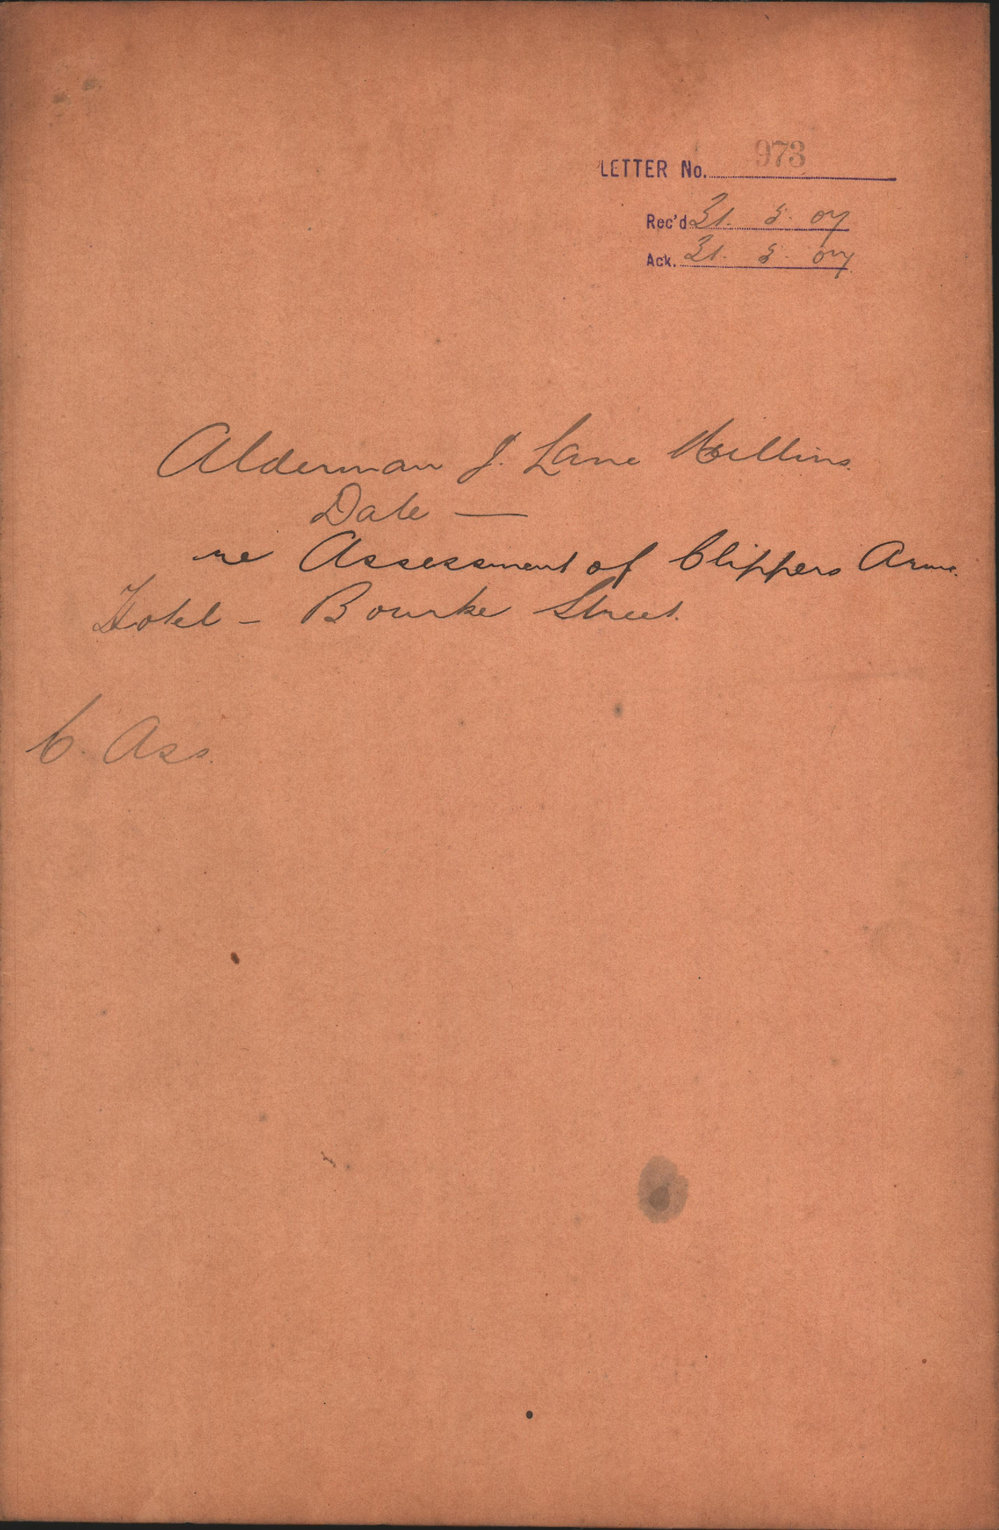 LETTER No. 973
Rec'd 31. 5. 07
Ack. 31. 5. 07
Alderman J. Lane Mullins
Date —
re Assessment of Clippers Arms
Hotel – Bourke Street.
C. Ass.